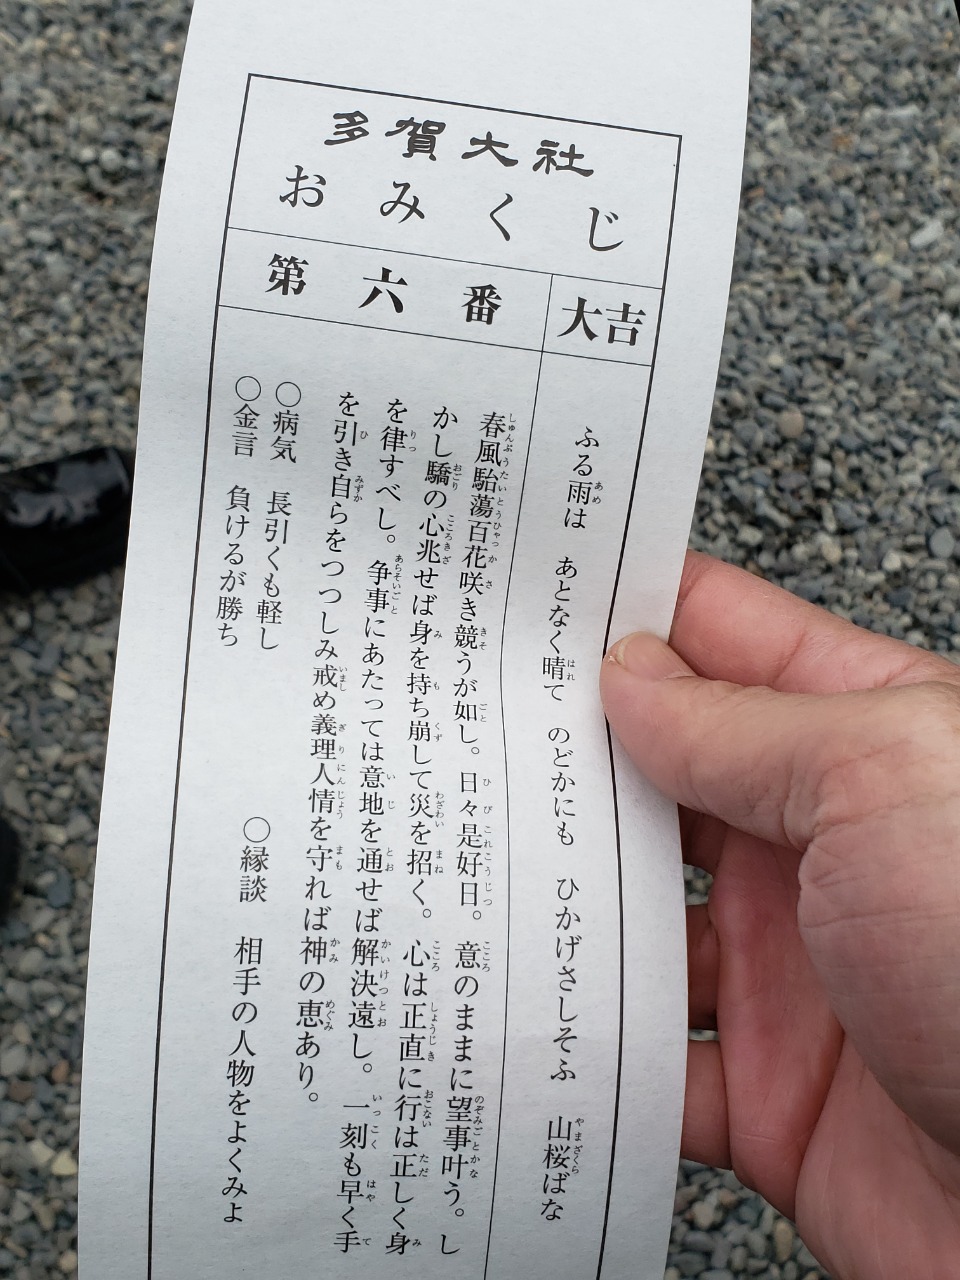 多賀大社
おみくじ
第六番 大吉
ふる雨は あとなく晴て のどかにも ひかげさしそふ 山桜ばな
春風駘蕩百花咲き競うが如し。日々是好日。意のままに望事叶う。し
かし驕の心兆せば身を持ち崩して災を招く。心は正直に行は正しく身
を律すべし。争事にあたっては意地を通せば解決遠し。一刻も早く手
を引き自らをつつしみ戒め義理人情を守れば神の恵あり。
○病気 長引くも軽し
○縁談 相手の人物をよくみよ
○金言 負けるが勝ち